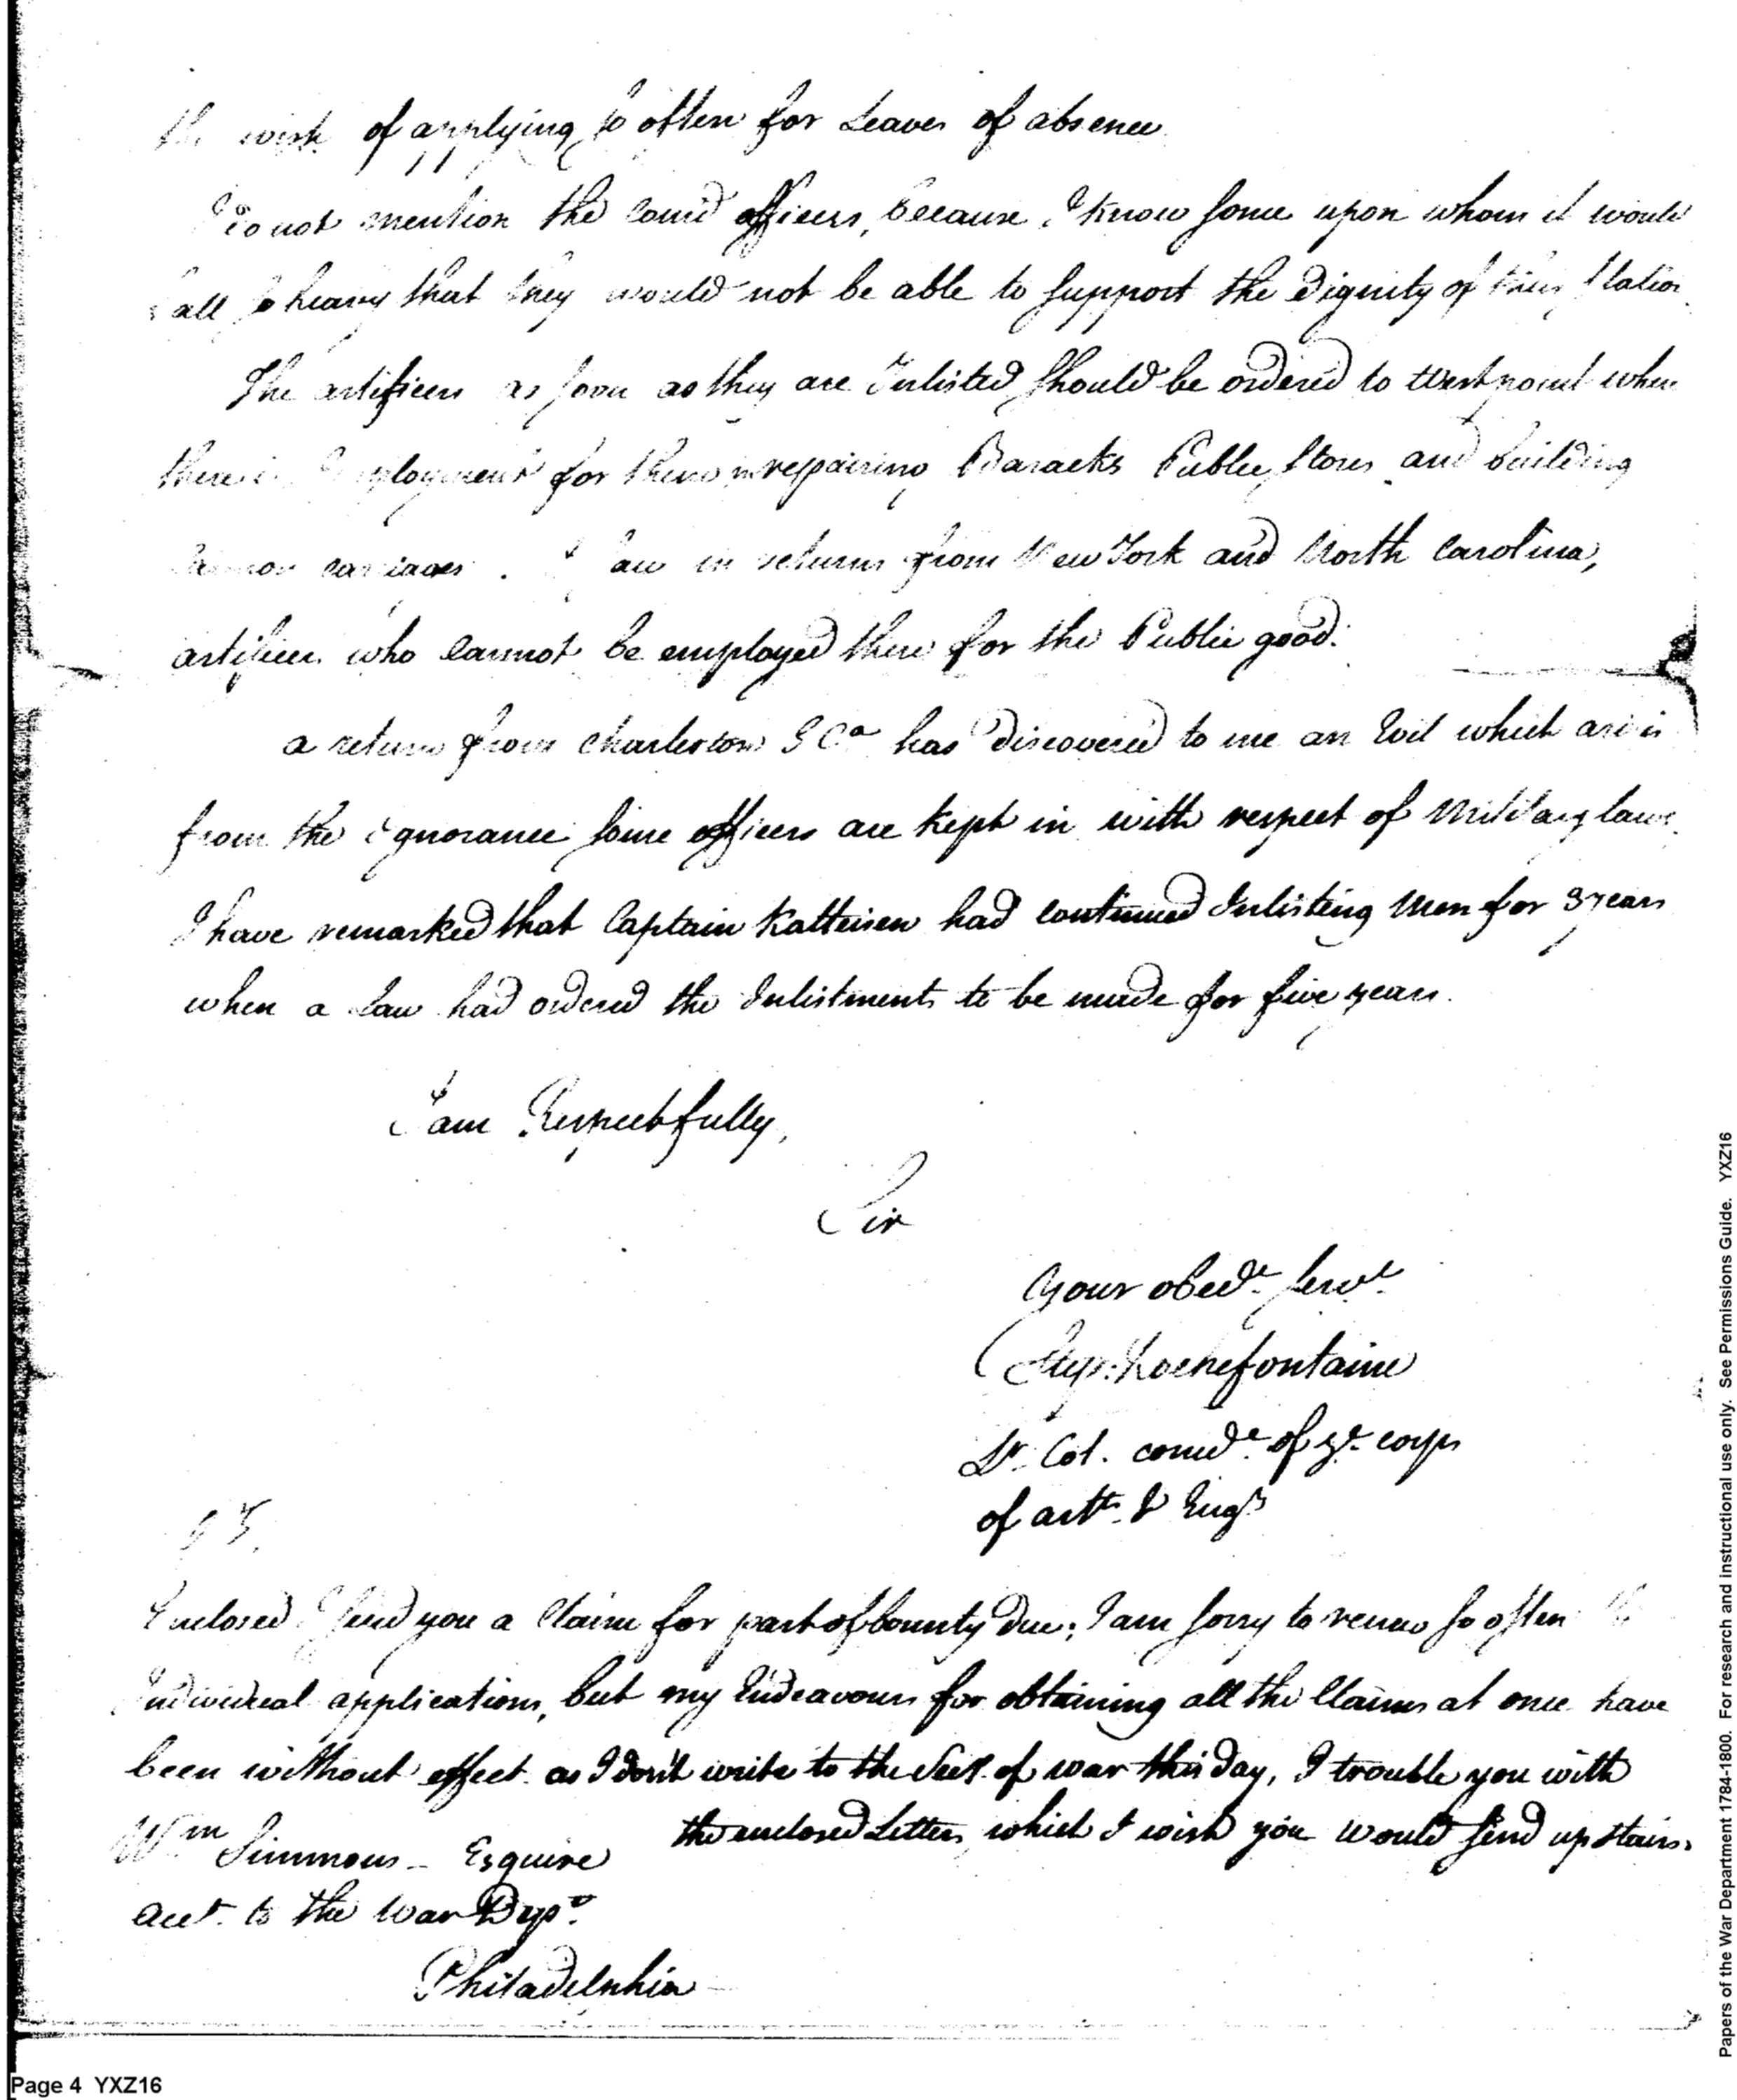 the wish of applying to often for Leaves of absence.
I do not mention the Com'd officers, because, I know some upon whom it would
fall so heavy that they would not be able to support the Dignity of their station
The artificers as soon as they are Inlisted should be ordered to West point when
there is Employment for them in repairing Baracks Public stores and building
Cannon carriages. I saw in returns from New York and North Carolina,
artificers who Cannot be employed there for the Public good.
a return from Charlestown S Ca has discovered to me an Evil which arises
from the ignorance some officers are kept in with respect of Military laws.
I have remarked that Captain Kalteisen had continued Inlisting Men for 3 years
when a Law had ordered the Inlistments to be made for five years.
I am Respectfully,
Sir
Your obedt. servt.
Step: Rochefontaine
Lt. Col. comdt. of ye. corps
of artts. & Engrs
PS.
Enclosed I send you a Claim for part of bounty Due; I am sorry to renew so often the
Individual applications, but my Endeavours for obtaining all the Claims at once have
been without effect. as I don't write to the Sect. of war this Day, I trouble you with
the enclosed Letter, which I wish you would send up stairs.
Wm Simmons - Esquire
acct. to the War Dept.
Philadelphia
Page 4 YXZ16
Papers of the War Department 1784-1800. For research and instructional use only. See Permissions Guide. YXZ16